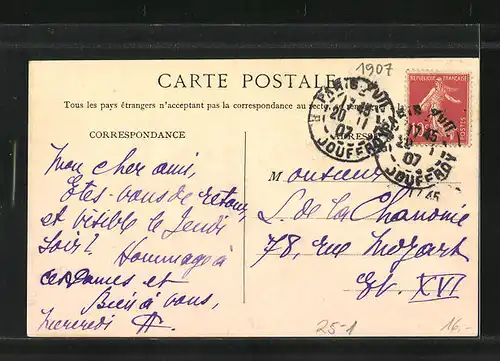 1907
CARTE POSTALE
Tous les pays étrangers n'acceptent pas la correspondance au recto.
CORRESPONDANCE
ADRESSE
REPUBLIQUE FRANÇAISE
PARIS XVII
17 45
20 - 1
07
JOUFFROY
PARIS XVII
17 45
20 - 1
07
JOUFFROY
Mon cher ami,
Etes-vous de retour,
et visible le Jeudi
soir ?
Hommage à
ces Dames et
Bien à vous,
Mercredi
Monsieur
L. de la Chanonie
78, rue Mozart
XVI
25-1
16.-